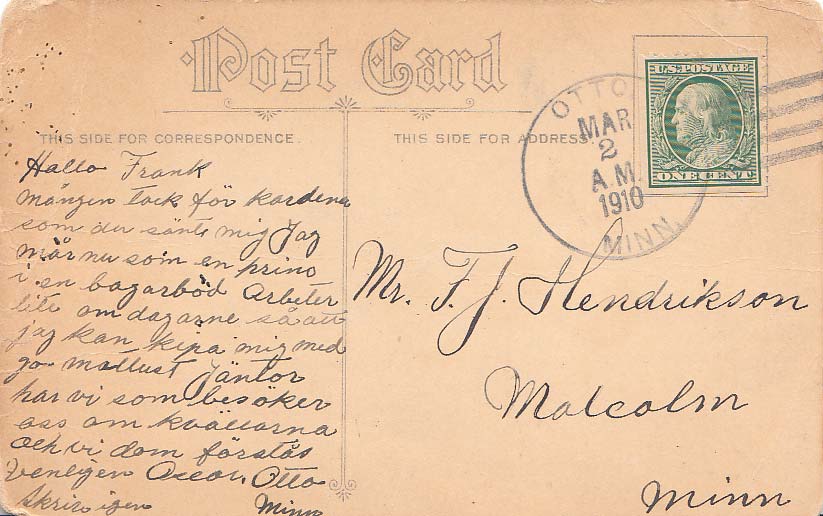 Post Card
THIS SIDE FOR CORRESPONDENCE.
THIS SIDE FOR ADDRESS.
U.S. POSTAGE
ONE CENT
OTTO
MAR
2
A.M.
1910
MINN.
Hallo Frank
mången tack för kardena
som du sänte mig Jag
mår nu som en prins
i en bagarbod Arbeter
lite om dagarne så att
jag kan kipa mig med
go matlust Jäntor
har vi som besöker
oss om kvällarna
och vi dom förstås
venligen Oscar, Otto
Skriv igen Minn
Mr. F. J. Hendrikson
Malcolm
Minn